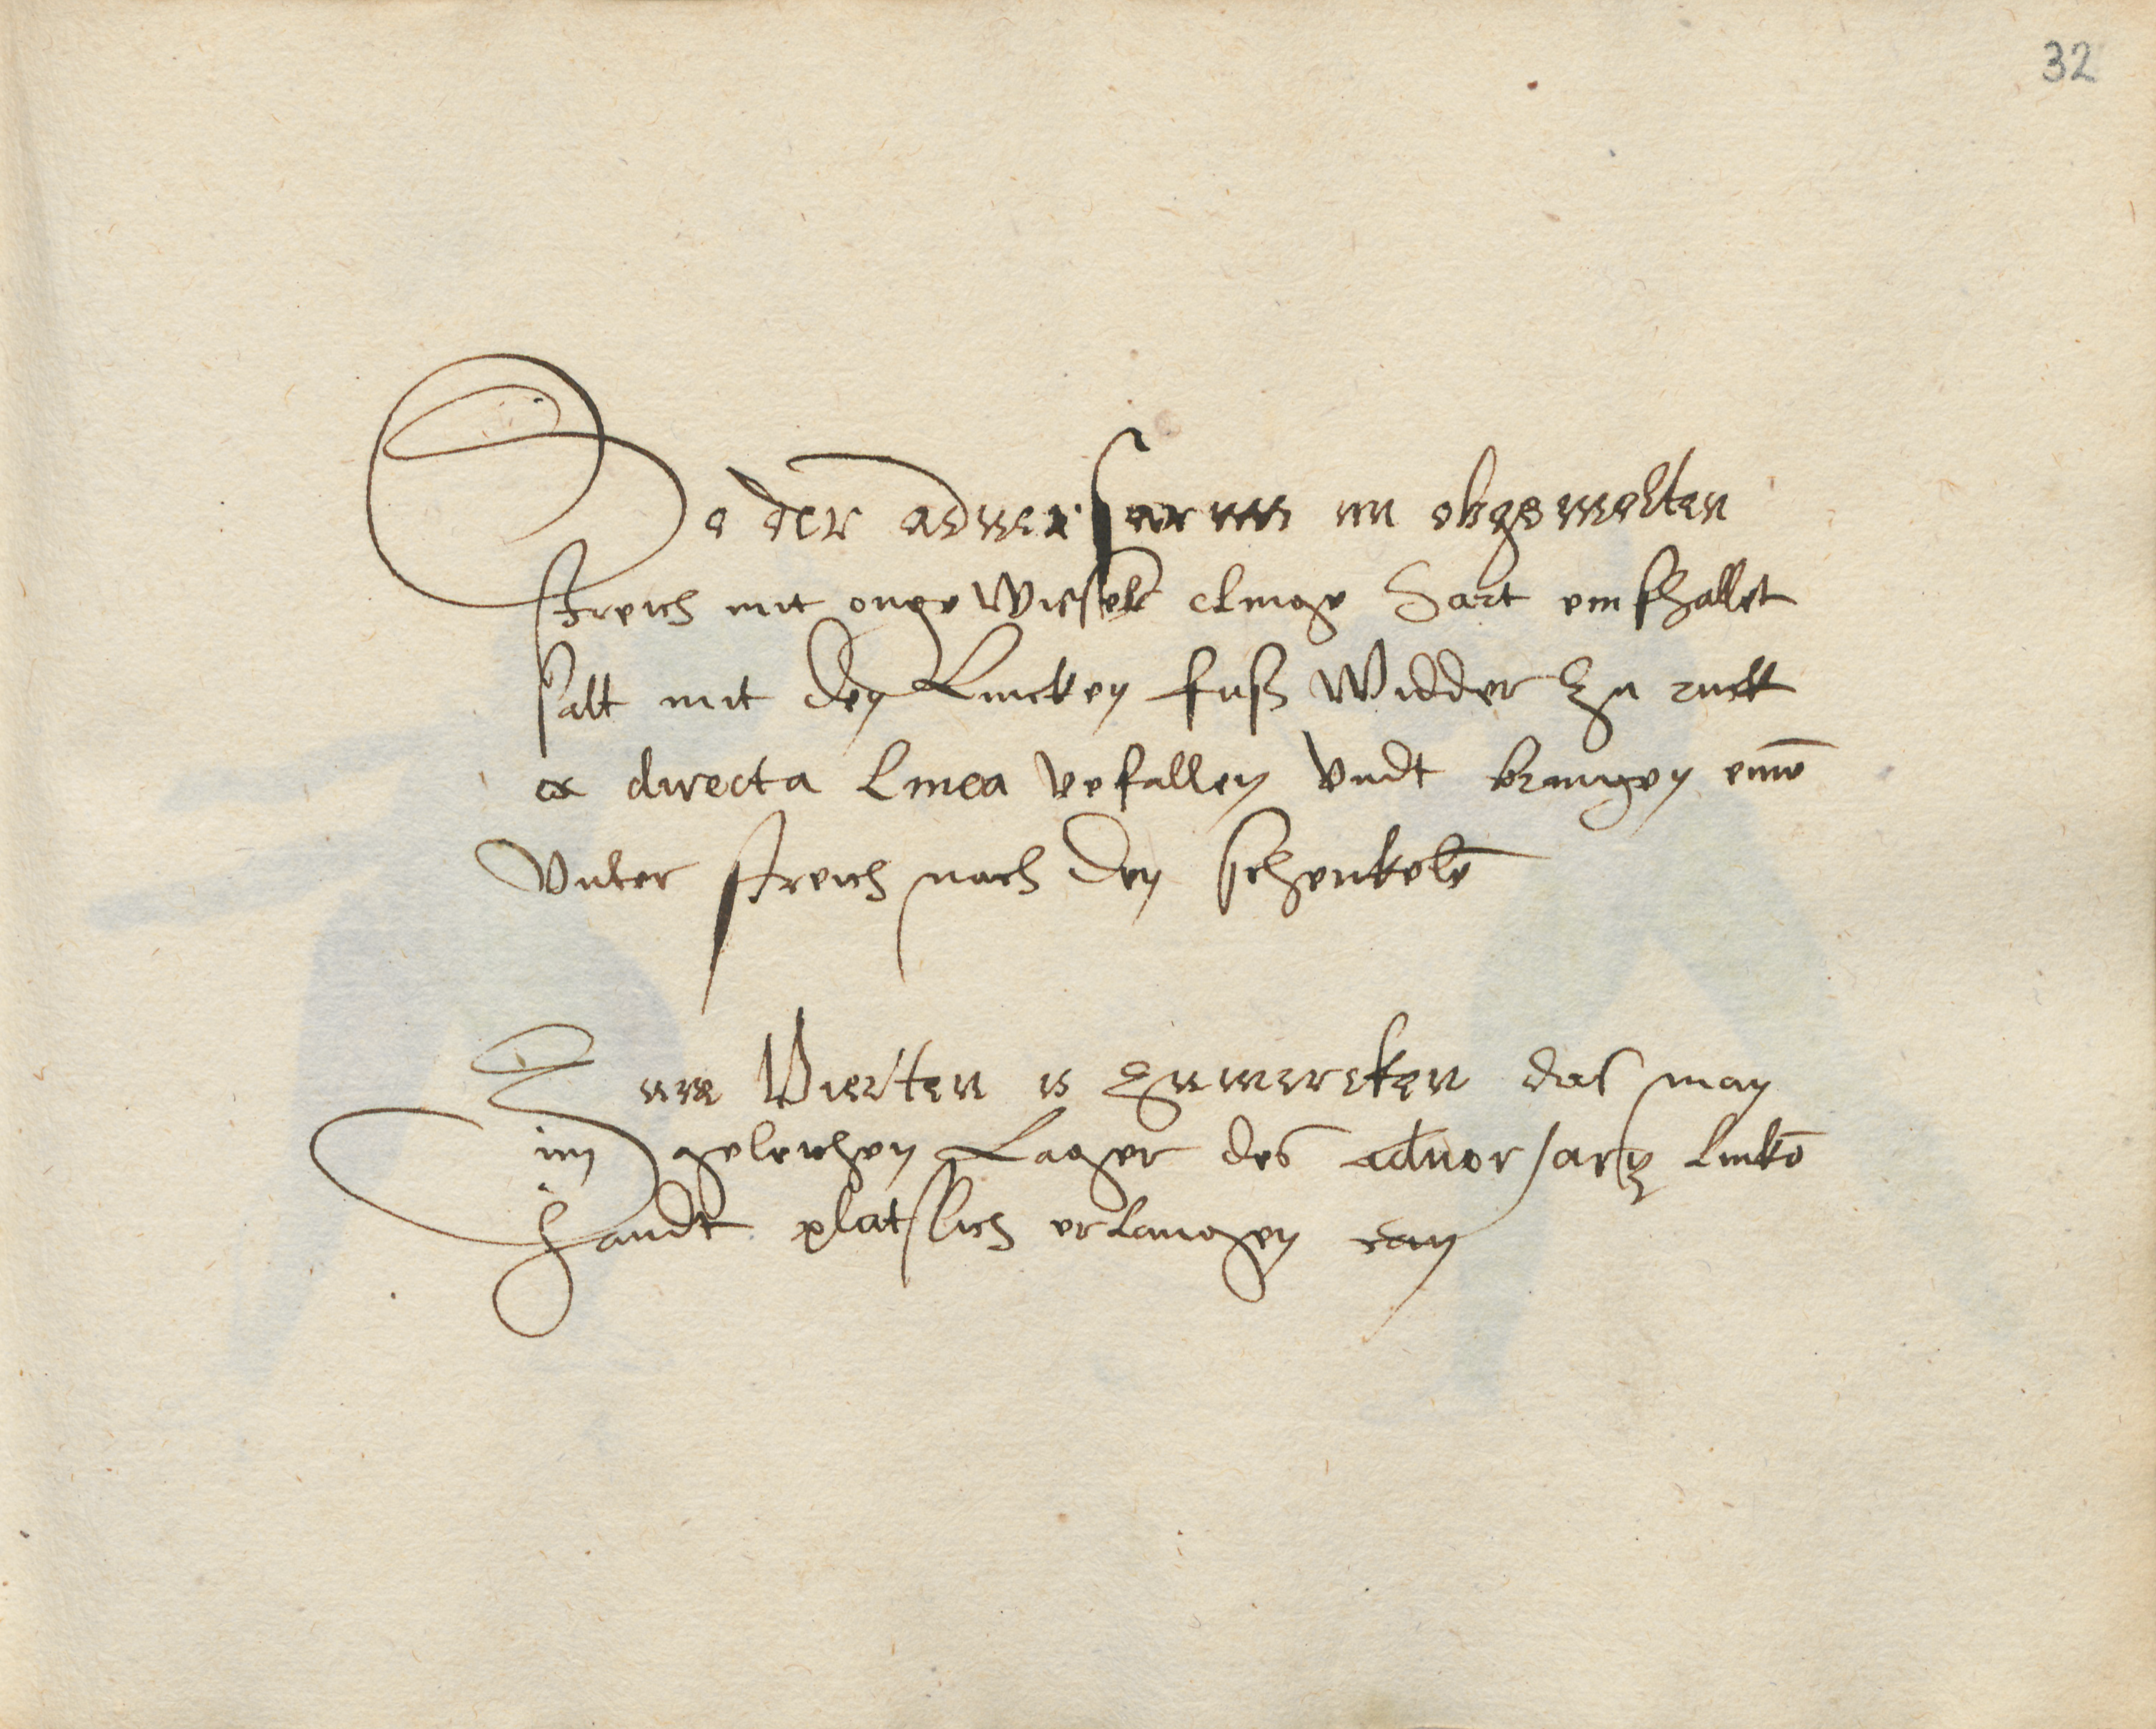 32
So der adversarius im obgemelten
streich mit onge Wisselt clinge hart einfhallet
salt mit den Lincken fuß Widder zu ruck
ex directa linea vefallen Vndt bringen eine͞
Vnter streich nach den schenkele͞
Zum Vierten is zumercken das man
im geleichen Lager des aduersarÿ linke͞
handt platslich erlangen can